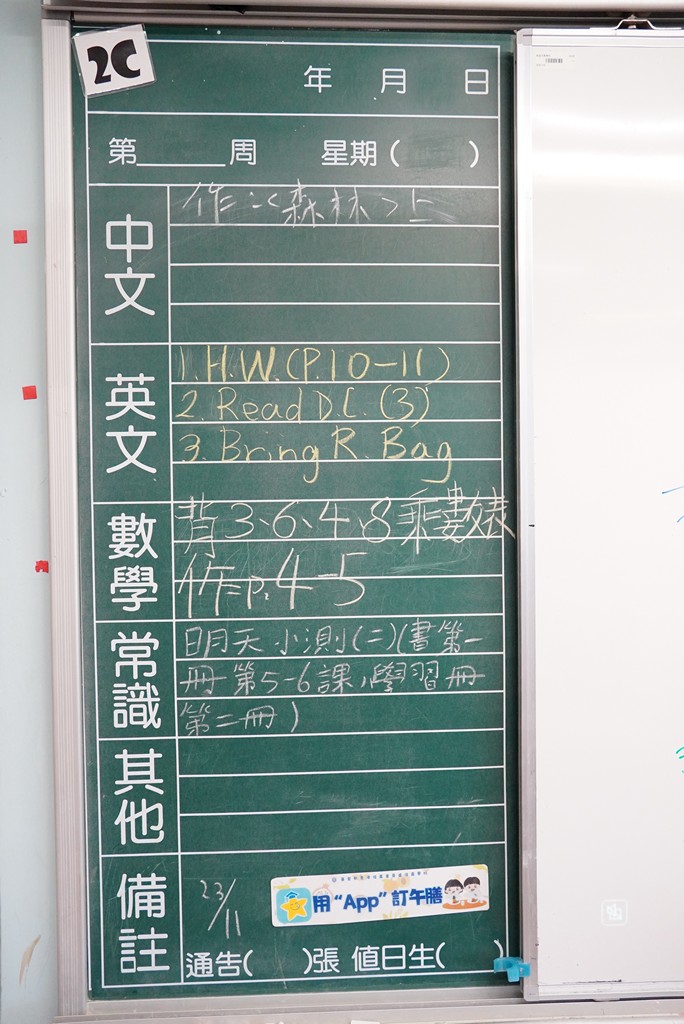 2C
年 月 日
第______周 星期( )
中文
作：<森林>上
英文
1. H.W. (P.10-11)
2. Read D.C. (3)
3. Bring R. Bag
數學
背3、6、4、8乘數表
作=P.4-5
常識
明天小測(二)(書第一
冊第5-6課,學習冊
第二冊)
其他
備註
23/11
用“App”訂午膳
通告( )張 值日生( )